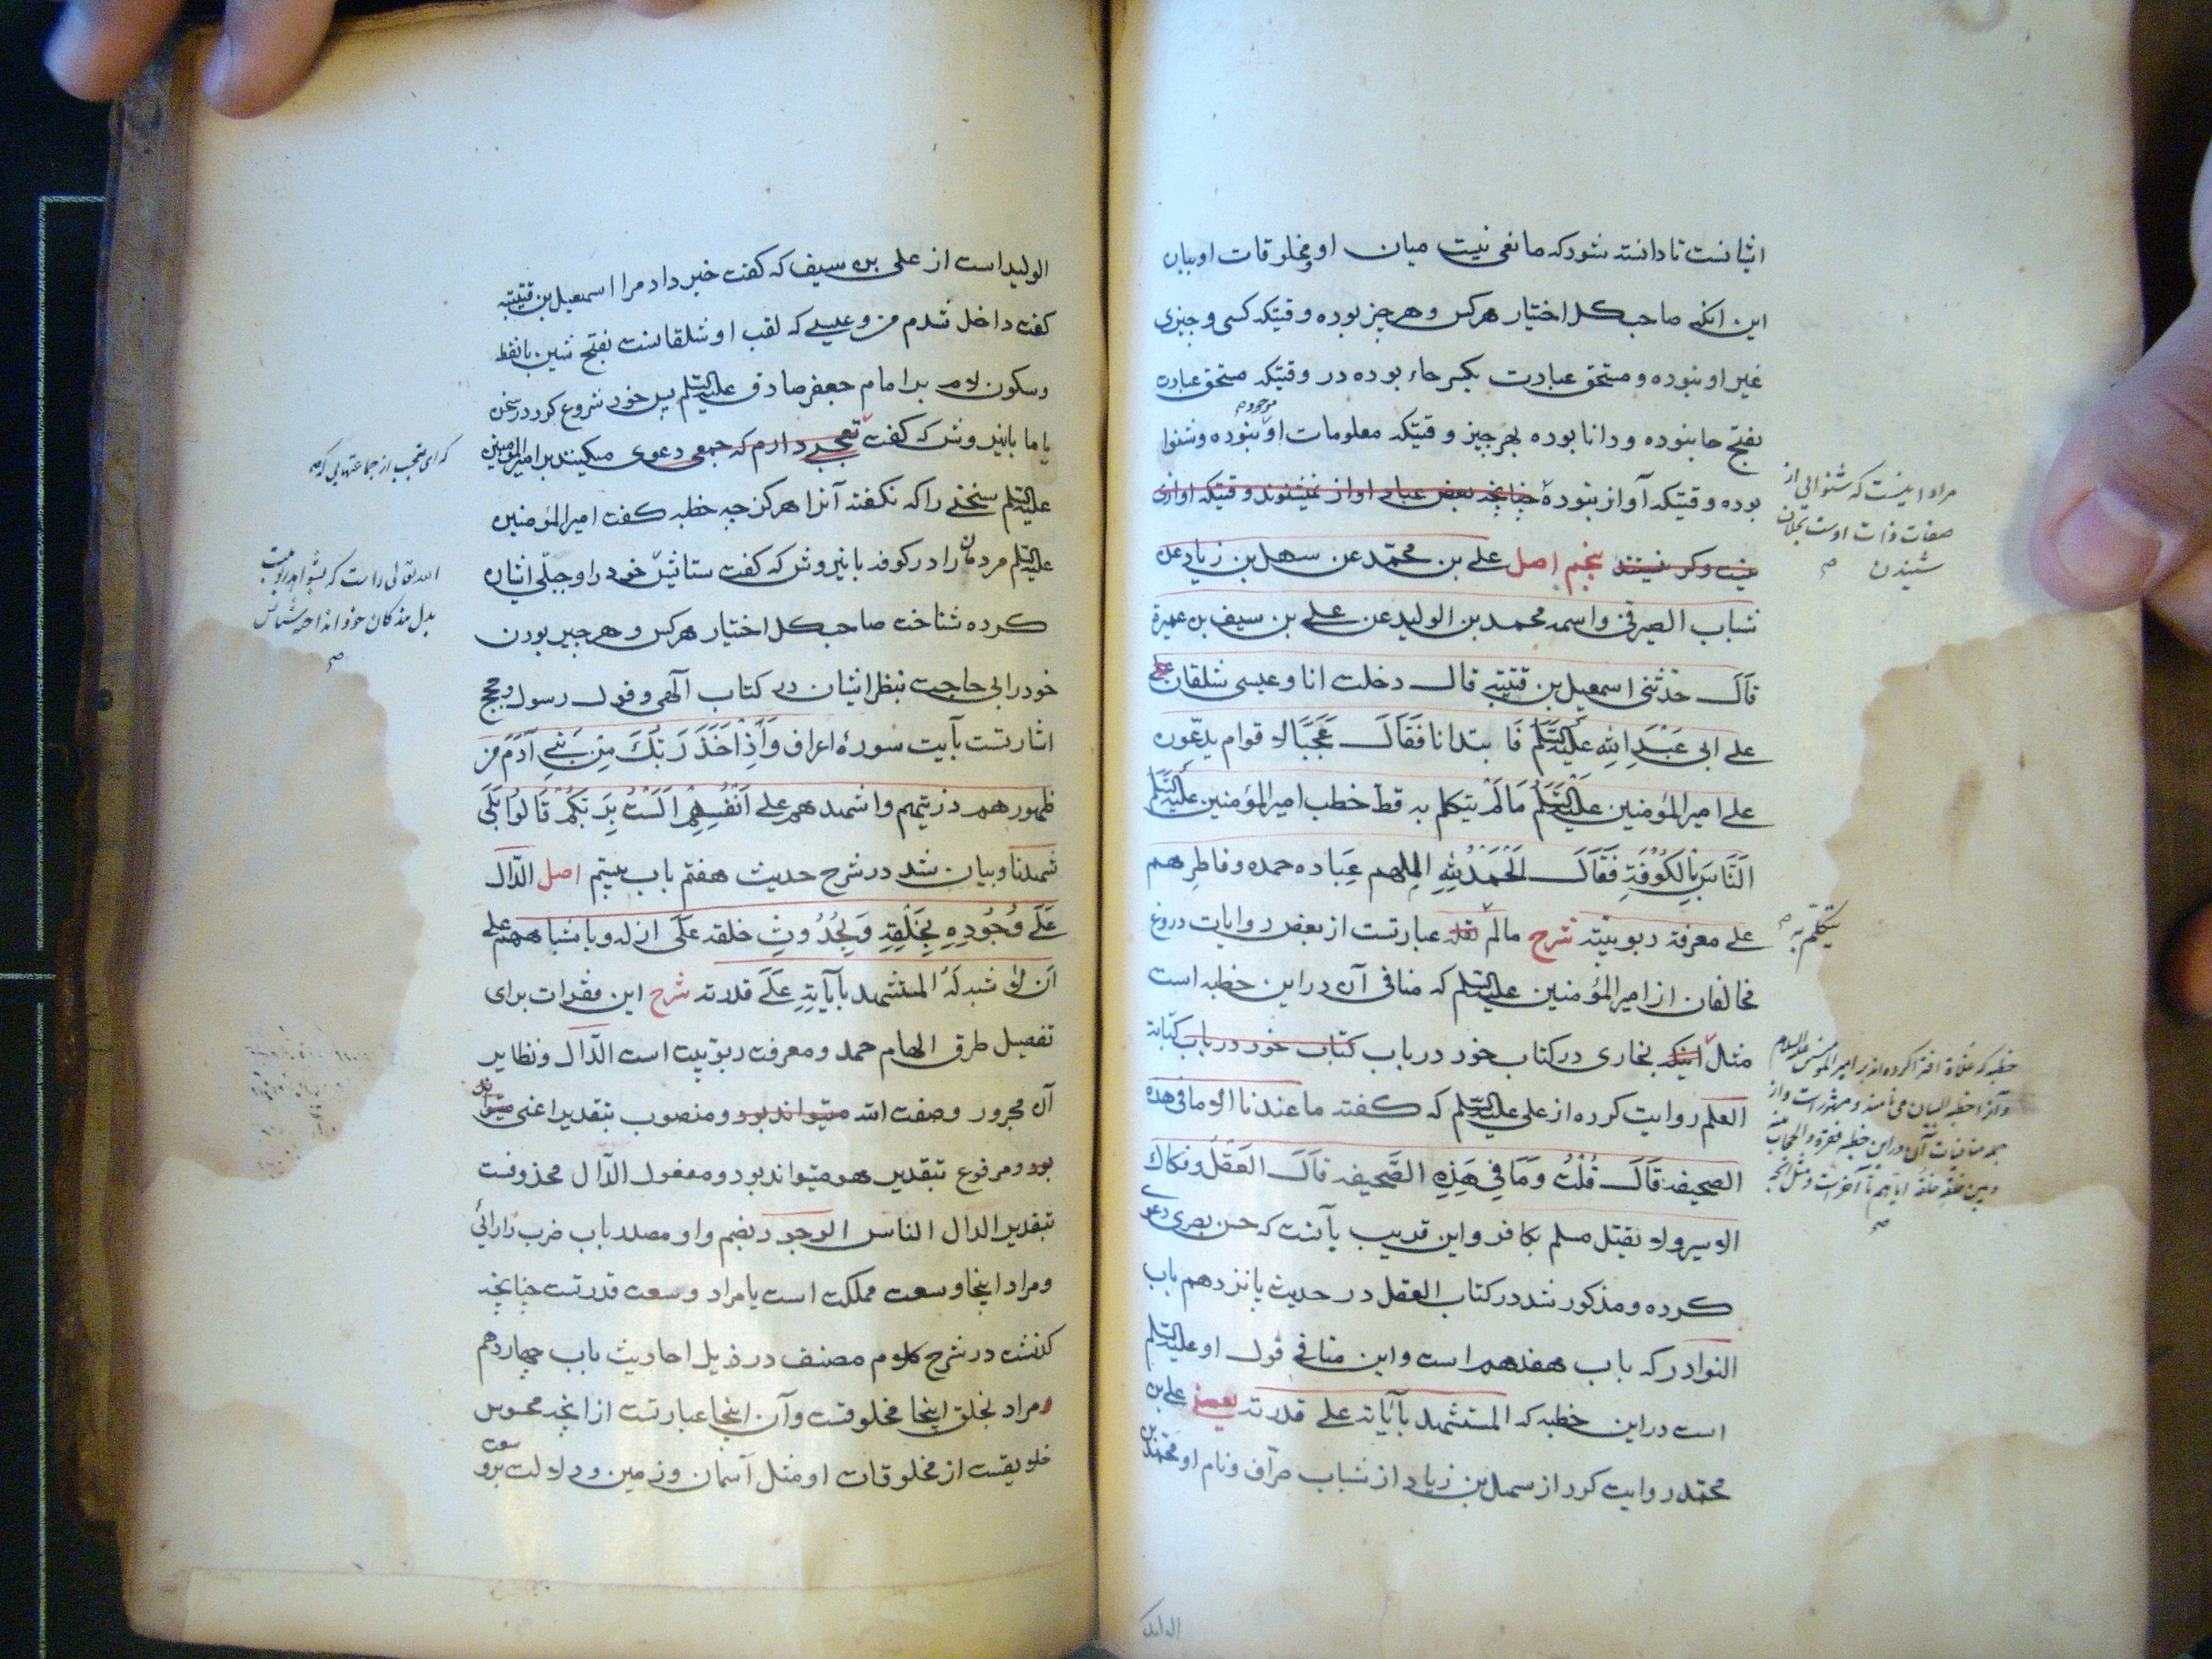 اثبانست تا دانسته شود که مانعی نیست میان او و مخلوقات او بیان
این انکه صاحب کل اختیار هر کس و هر چیز بوده وقتیکه کسی و چیزی
غیر او نبوده و مستحق عبادت بکسر حاء بوده در وقتیکه مستحق عبادت
بفتح حا نبوده و دانا بوده بهر چیز وقتیکه معلومات او موجود نبوده و شنوا
بوده وقتیکه آواز نبوده چنانچه بعض عباد او از نمیشنوند وقتیکه اوازی
نیست و کر نیستند پنجم اصل علی بن محمّد عن سهل بن زیاد عن
شباب الصیرفی و اسمه محمد بن الولید عن علی بن سیف بن عمیرة
قال حدّثنی اسمعیل بن قتیبه قال دخلت انا و عیسی شلقان
علی ابی عَبْدِ اللهِ علیه السّلم فابتدانا فَقَالَ عَجَبًا لاقوام یدّعون
علی امیر المؤمنین علیه السّلم مَا لَمْ یتکلم به قطّ خطب امیر المؤمنین علیه السّلم
النَّاسَ بِالکُوفَةِ فَقَالَ الْحَمْدُ لِلّهِ المُلهم عِبَاده حمده و فاطرهم
علی معرفة ربوبیته شرح مالم عبارتست از بعض روایات دروغ
مخالفان از امیر المؤمنین علیه السّلم که منافی آن در این خطبه است
مثل اینکه بخاری در کتاب خود در باب کتاب خود در باب کتابة
العلم روایت کرده از علی علیه السّلم که گفته ما عندنا الا ما فی هذه
الصحیفه قَالَ قُلْتُ وَمَا فِی هَذِهِ الصَّحیفه قَالَ العَقْل وفکاك
الاسیر ولا یقتل مسلم بکافر و این قریب بآنست که حسن بصری دعوی
کرده و مذکور شد در کتاب العقل در حدیث پانزدهم باب
النوادر که باب هفدهم است و این منافی قول او علیه السّلم
است در این خطبه که المستشهد بآیاته علی قدرته یعنی علی بن
محمّد روایت کرد از سهل بن زیاد از شباب صرّاف و نام او محمّد بن
مراد اینست که شنوایی از
صفات ذات اوست بخلاف
شنیدن
یتکلّم به
خطبه که غلاة افترا کرده اند بر امیر المؤمنین علیه السلام
و آنرا خطبة البیان می نامند و مشهور است و از
الولید است از علی بن سیف که گفت خبر داد مرا اسمعیل بن قتیبه
گفت داخل شدم من و عیسی که لقب او شلقانست بفتح شین بانقط
و سکون لام بر امام جعفر صادق علیه السّلم پس خود شروع کرد در سخن
با ما باین روش که گفت تعجب دارم که جمعی دعوی میکنند بر امیر المؤمنین
علیه السّلم سخنی را که نگفته آنرا هرگز چه خطبه گفت امیر المؤمنین
علیه السّلم مردمان را در کوفه باین روش که گفت ستائش خود را و جبلّی ایشان
کرده شناخت صاحب کل اختیار هر کس و هر چیز بودن
خود را بی حاجت بنظر ایشان در کتاب آلهی و قول رسول و حجج
اشارتست بآیت سورۀ اعراف وَإِذْ أَخَذَ رَبُّكَ مِنْ بَنِي آدَمَ من
ظهورهم ذرّیتهم واشهدهم علی أَنْفُسِهِمْ أَلَسْتُ بِرَبِّكُمْ قَالُوا بَلَى
شهدنا و بیان شد در شرح حدیث هفتم باب بیستم اصل الدّال
عَلَی وُجُودِهِ بِخَلْقِهِ وَبِحُدُوثِ خلقه عَلَی ازله و باشباههم علی
اَن لا شبه لَهُ المستشهد بآیاتِهِ عَلَی قدرته شرح این فقرات برای
تفصیل طرق الهام حمد و معرفت ربوبیت است الدّال و نظایر
آن مجرور و صفت الله میتواند بود و منصوب بتقدیر اعنی میتواند
بود و مرفوع بتقدیر هو میتواند بود و مفعول الدّال محذوفست
بتقدیر الدال الناس الوجود بضم واو مصدر باب ضرب دارائی
و مراد اینجا وسعت مملکت است یا مراد وسعت قدرتست چنانچه
گذشت در شرح کلام مصنف در ذیل احادیث باب چهاردهم
مراد بخلق اینجا مخلوقست و آن اینجا عبارتست از انچه محسوس
خلایقست از مخلوقات او مثل آسمان و زمین و دلالت بر وسعت
که ای تعجب از جماعتهایی که
الله تعالی راست که
بدل بندگان خود انداخته شناس